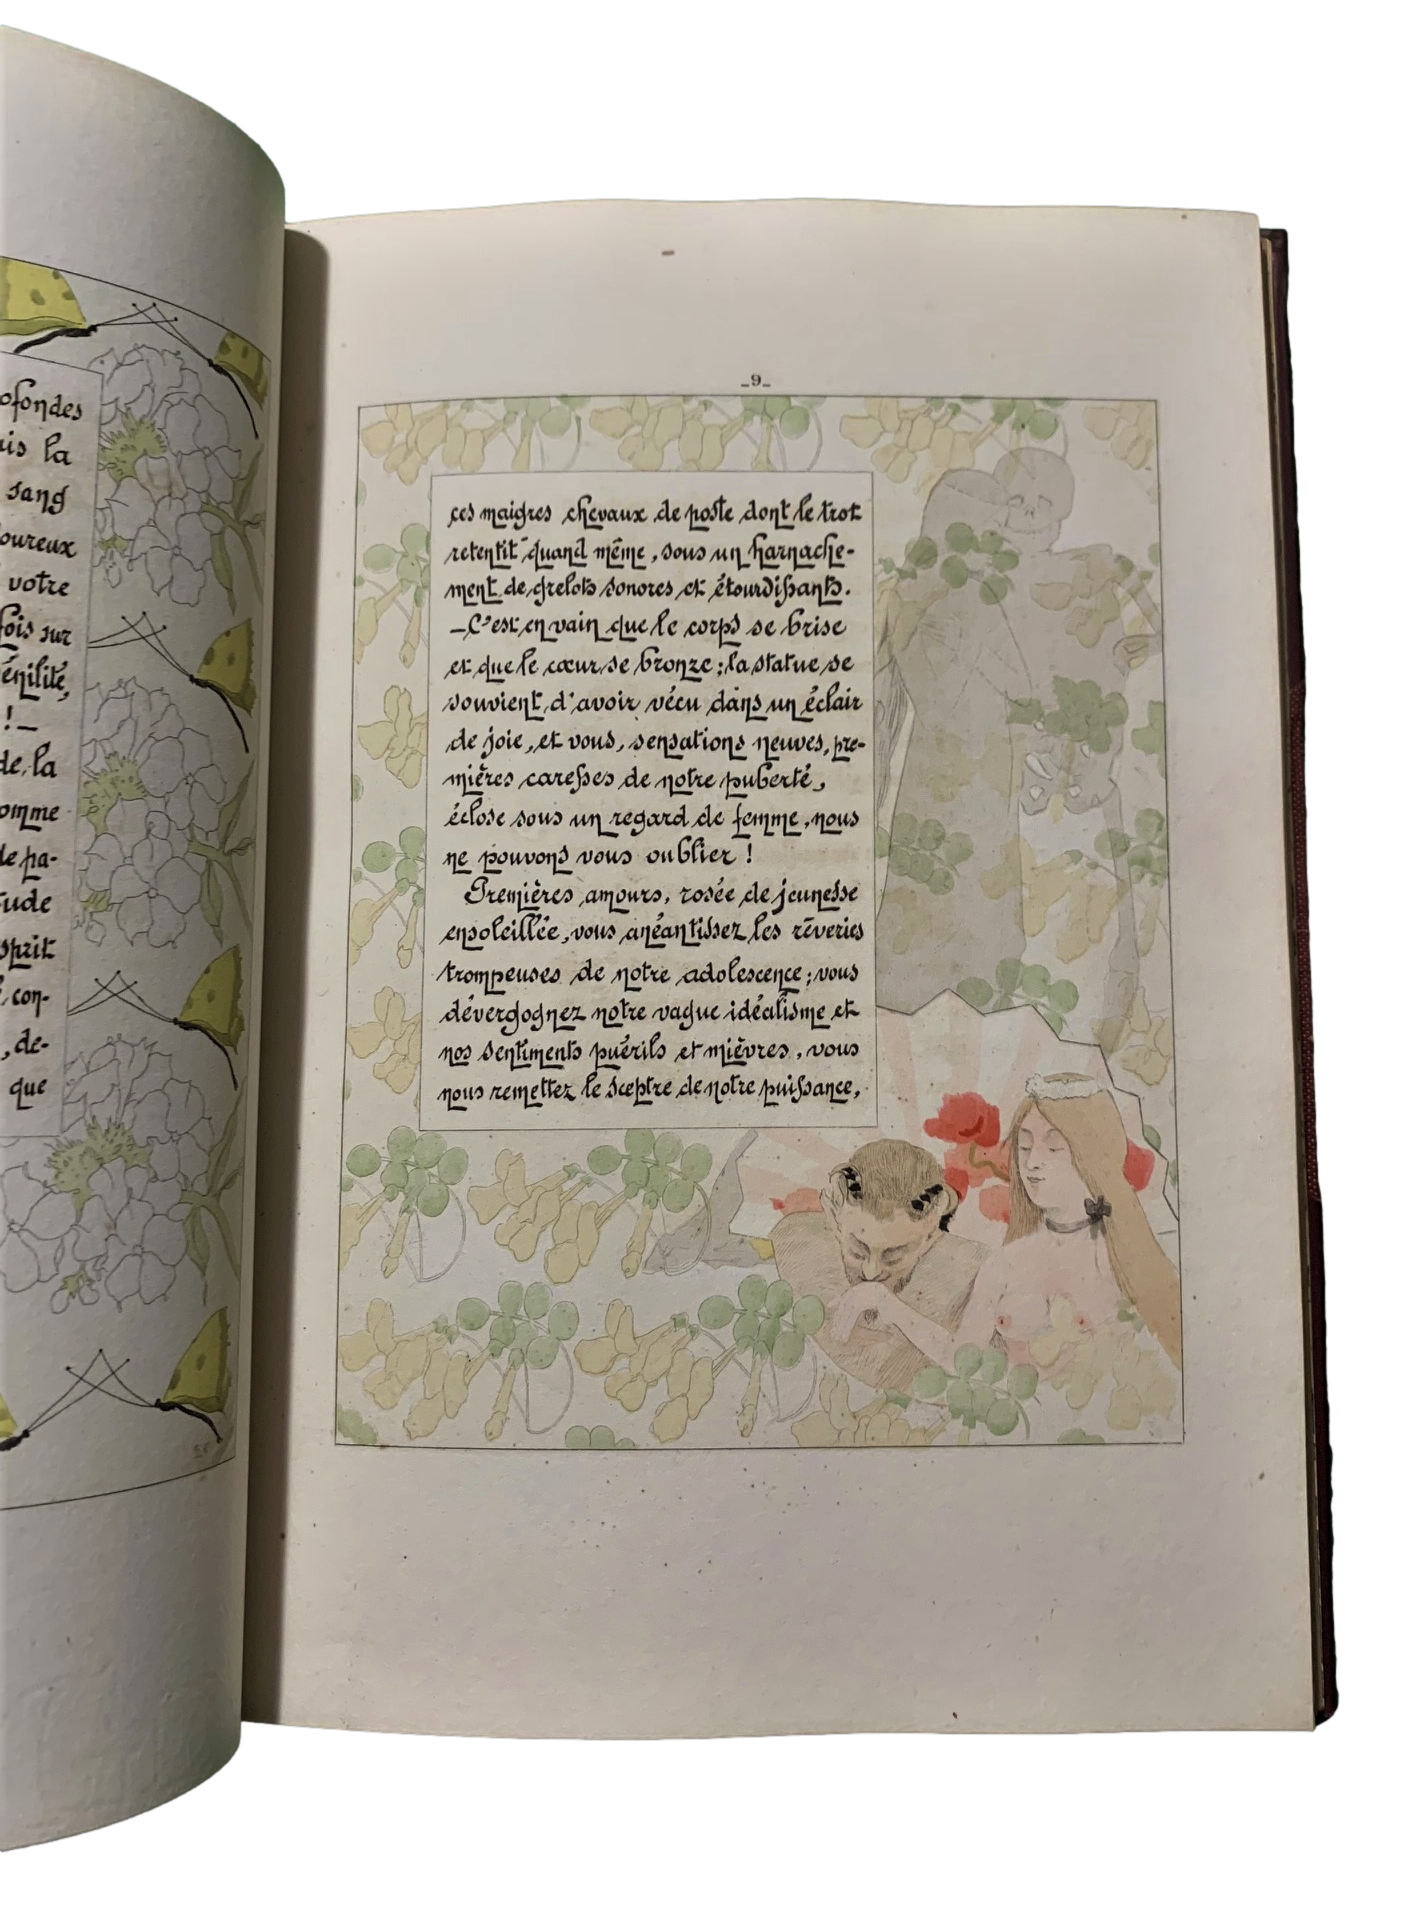 ofondes
is la
sang
oureux
votre
fois sur
énilité,
! —
de, la
omme
de pa-
tude
sprit
, con-
, de-
que
_9_
ces maigres chevaux de poste dont le trot
retentit quand même, sous un harnache-
ment de grelots sonores et étourdissants.
— C'est en vain que le corps se brise
et que le cœur se bronze ; la statue se
souvient d'avoir vécu dans un éclair
de joie, et vous, sensations neuves, pre-
mières caresses de notre puberté,
éclose sous un regard de femme, nous
ne pouvons vous oublier !
Premières amours, rosée de jeunesse
ensoleillée, vous anéantissez les rêveries
trompeuses de notre adolescence ; vous
dévergognez notre vague idéalisme et
nos sentiments puérils et mièvres, vous
nous remettez le sceptre de notre puissance,